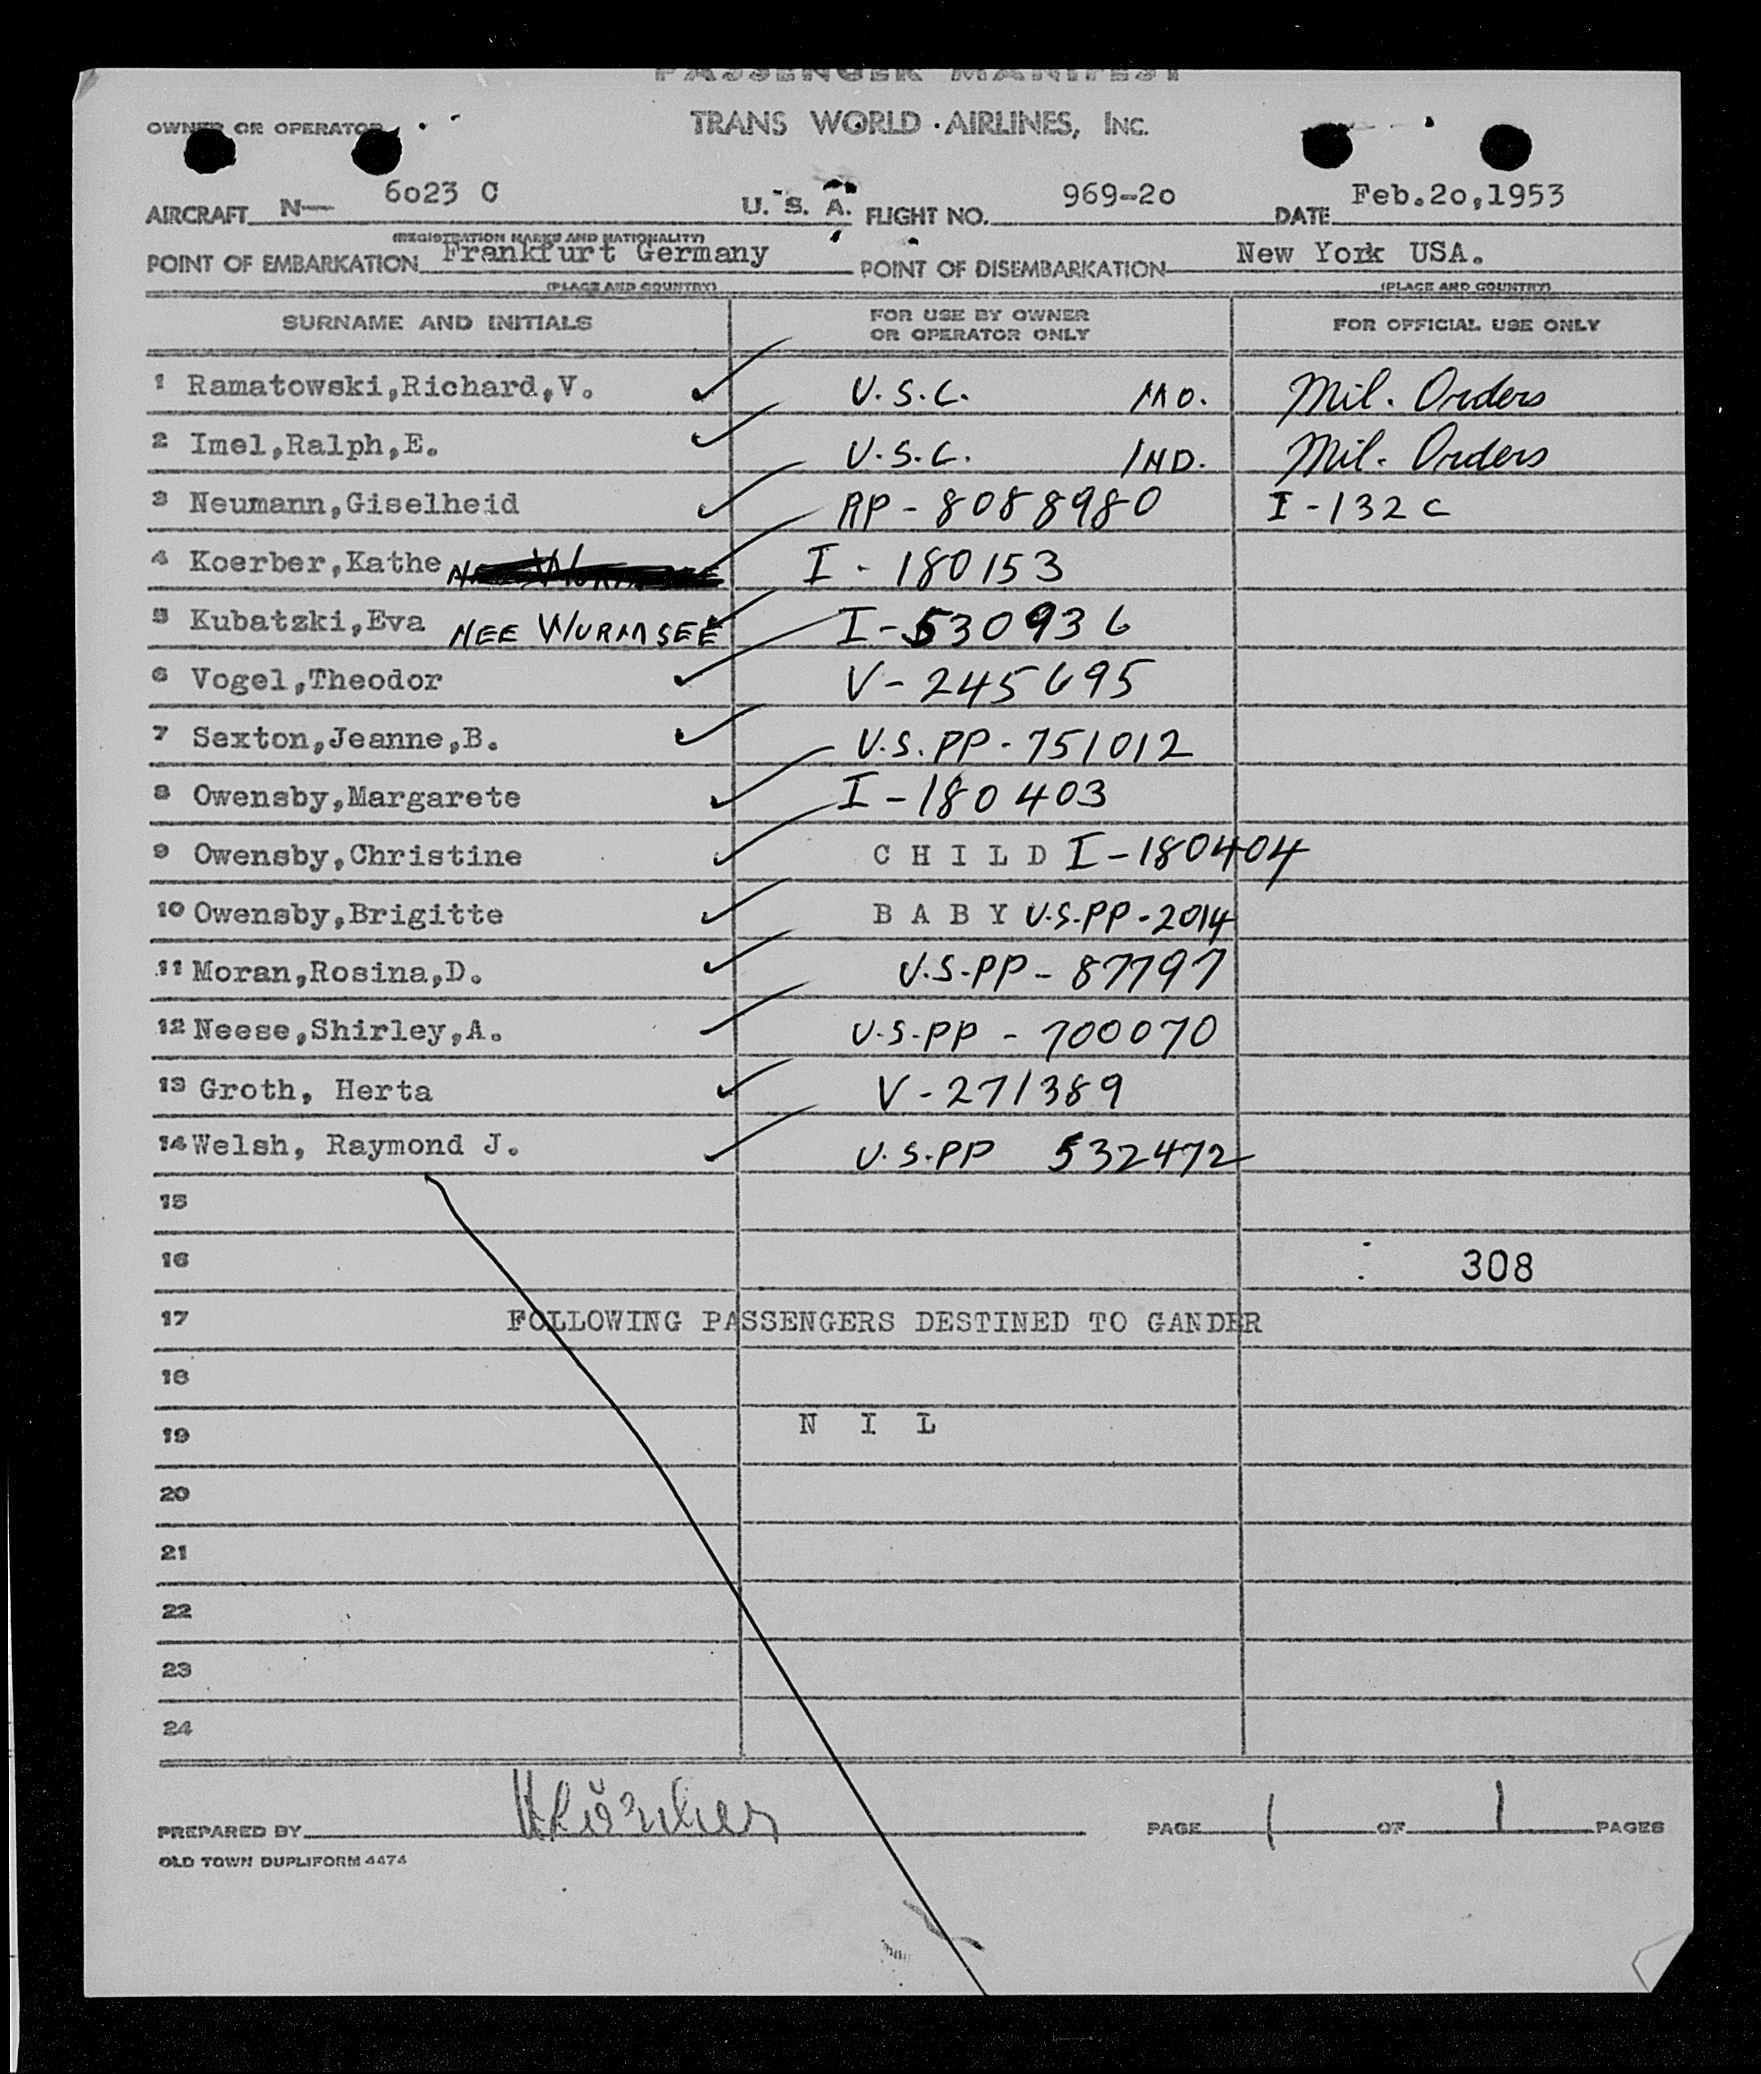 PASSENGER MANIFEST
OWNER OR OPERATOR TRANS WORLD AIRLINES, INC.
AIRCRAFT N— 6023 C U. S. A. FLIGHT NO. 969-2o DATE Feb.2o,1953
(REGISTRATION MARKS AND NATIONALITY)
POINT OF EMBARKATION Frankfurt Germany POINT OF DISEMBARKATION New York USA.
(PLACE AND COUNTRY) (PLACE AND COUNTRY)
SURNAME AND INITIALS FOR USE BY OWNER OR OPERATOR ONLY FOR OFFICIAL USE ONLY
1 Ramatowski,Richard,V. U.S.C. MO. Mil. Orders
2 Imel,Ralph,E. U.S.C. IND. Mil. Orders
3 Neumann,Giselheid RP - 8088980 I - 132 C
4 Koerber,Kathe I - 180153
5 Kubatzki,Eva NEE WURMSEE I - 530936
6 Vogel,Theodor V - 245695
7 Sexton,Jeanne,B. U.S. PP - 751012
8 Owensby,Margarete I - 180403
9 Owensby,Christine C H I L D I - 180404
10 Owensby,Brigitte B A B Y U.S.PP - 2014
11 Moran,Rosina,D. U.S-PP - 87797
12 Neese,Shirley,A. U.S-PP - 700070
13 Groth, Herta V - 271389
14 Welsh, Raymond J. U.S.PP 532472
15
16 308
17 FOLLOWING PASSENGERS DESTINED TO GANDER
18
19 N I L
20
21
22
23
24
PREPARED BY PAGE 1 OF 1 PAGES
OLD TOWN DUPLIFORM 4474